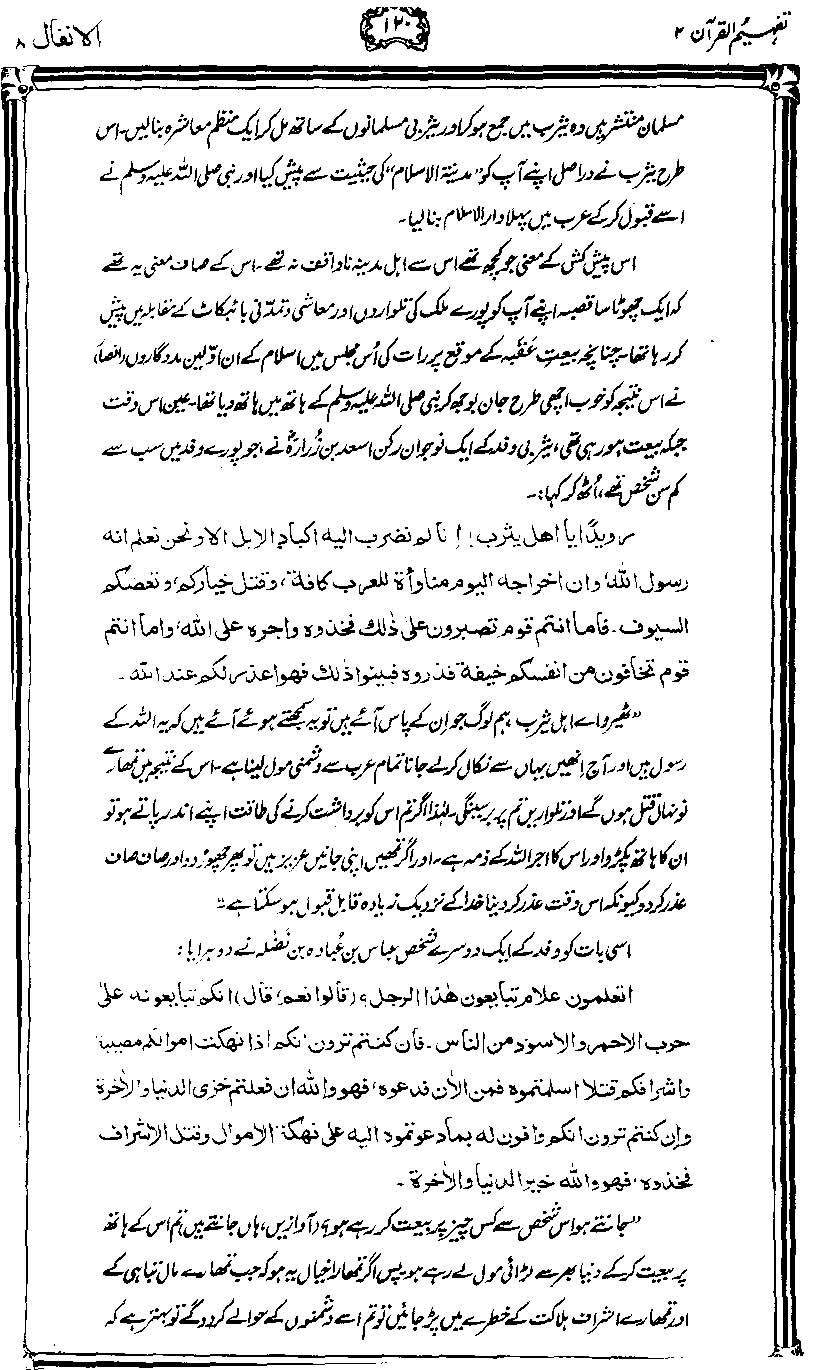 تفہیم القرآن ۲
۱۲۰
الانفال ۸
مسلمان منتشر ہیں وہ یثرب میں جمع ہو کر اور یثربی مسلمانوں کے ساتھ مل کر ایک منظم معاشرہ بنا لیں۔ اس
طرح یثرب نے دراصل اپنے آپ کو "مدینۃ الاسلام" کی حیثیت سے پیش کیا اور نبی صلی اللہ علیہ وسلم نے
اسے قبول کر کے عرب میں پہلا دار الاسلام بنا لیا۔
اس پیش کش کے معنی جو کچھ تھے اس سے اہل مدینہ ناواقف نہ تھے۔ اس کے صاف معنی یہ تھے
کہ ایک چھوٹا سا قصبہ اپنے آپ کو پورے ملک کی تلواروں اور معاشی و تمدّنی بائیکاٹ کے مقابلہ میں پیش
کر رہا تھا۔ چنانچہ بیعتِ عَقَبہ کے موقع پر رات کی اُس مجلس میں اسلام کے ان اوّلین مددگاروں (انصار)
نے اس نتیجہ کو خوب اچھی طرح جان بوجھ کر نبی صلی اللہ علیہ وسلم کے ہاتھ میں ہاتھ دیا تھا۔ عین اس وقت
جبکہ بیعت ہو رہی تھی، یثربی وفد کے ایک نوجوان رکن اسعد بن زُرارہؓ نے، جو پورے وفد میں سب سے
کم سن شخص تھے، اُٹھ کر کہا:۔
رویدًا یا اھل یثرب! انا لم نضرب الیہ اکباد الابل الا و نحن نعلم انه
رسول اللہ، وان اخراجه الیوم مناوأة للعرب کافة، وقتل خیارکم، وتعضکم
السیوف۔ فاما انتم قوم تصبرون علی ذٰلك فخذوہ واجرہ علی اللہ، واما انتم
قوم تخافون من انفسکم خیفة فذروہ فبینوا ذٰلك فھو اعذر لکم عند اللہ۔
"ٹھیرو اے اہل یثرب! ہم لوگ جو اِن کے پاس آئے ہیں تو یہ سمجھتے ہوئے آئے ہیں کہ یہ اللہ کے
رسول ہیں اور آج انھیں یہاں سے نکال کر لے جانا تمام عرب سے دشمنی مول لینا ہے۔ اس کے نتیجہ میں تمھارے
نونہال قتل ہوں گے اور تلواریں تم پر برسینگی۔ لہٰذا اگر تم اس کو برداشت کرنے کی طاقت اپنے اندر پاتے ہو تو
ان کا ہاتھ پکڑو اور اس کا اجر اللہ کے ذمہ ہے۔ اور اگر تمھیں اپنی جانیں عزیز ہیں تو پھر چھوڑ دو اور صاف صاف
عذر کر دو کیونکہ اس وقت عذر کر دینا خدا کے نزدیک زیادہ قابل قبول ہو سکتا ہے"۔
اسی بات کو وفد کے ایک دوسرے شخص عباس بن عُبادہ بن نَضلہ نے دوہرایا:
اتعلمون علام تبایعون ھٰذا الرجل؟ (قالوا نعم، قال) انکم تبایعونه علیٰ
حرب الاحمر والاسود من الناس۔ فان کنتم ترون انکم اذا نھکت اموالکم مصیبة
واشرافکم قتلا اسلمتموہ فمن الاٰن فدعوہ، فھو واللہ ان فعلتم خزی الدنیا والاٰخرة
وان کنتم ترون انکم وافون له بما دعوتموہ الیه علی نھکة الاموال وقتل الاشراف
فخذوہ، فھو واللہ خیر الدنیا والاٰخرة۔
"جانتے ہو اس شخص سے کس چیز پر بیعت کر رہے ہو؟ (آوازیں، ہاں جانتے ہیں) تم اس کے ہاتھ
پر بیعت کر کے دنیا بھر سے لڑائی مول لے رہے ہو۔ پس اگر تمھارا خیال یہ ہو کہ جب تمھارے مال تباہی کے
اور تمھارے اشراف ہلاکت کے خطرے میں پڑ جائیں تو تم اسے دشمنوں کے حوالے کر دو گے تو بہتر ہے کہ